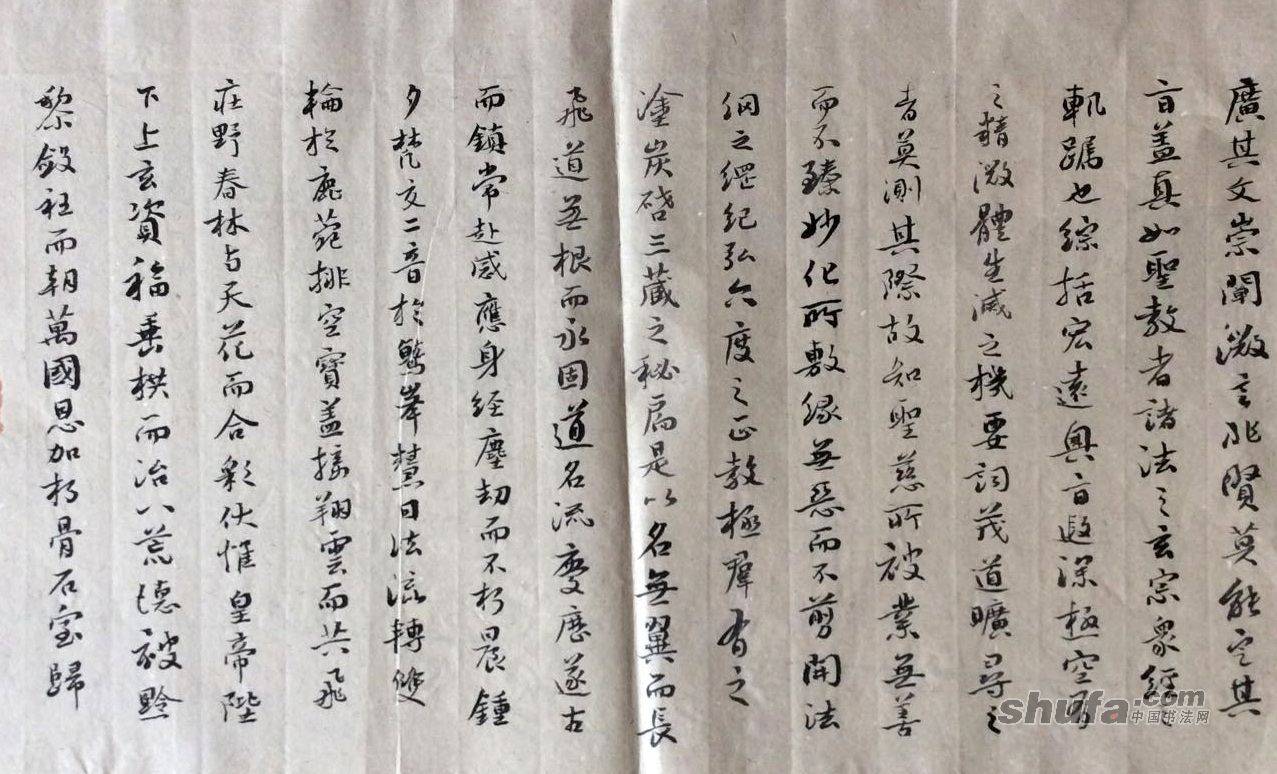 廣其文崇闡微言非賢莫能定其
旨蓋真如聖教者諸法之玄宗眾經之
軌躅也綜括宏遠奧旨遐深極空有
之精微體生滅之機要詞茂道曠尋之
者莫測其際故知聖慈所被業無善
而不臻妙化所敷緣無惡而不剪開法
網之綱紀弘六度之正教極群有之
塗炭啓三藏之秘扃是以名無翼而長
飛道無根而永固道名流慶歷遂古
而鎮常赴感應身經塵劫而不朽晨鍾
夕梵交二音於鷲峯慧日法流轉雙
輪於鹿菀排空寶盖接翔雲而共飛
莊野春林与天花而合彩伏惟皇帝陛
下上玄資福垂拱而治八荒德被黔
黎斂衽而朝萬國恩加朽骨石室歸
shufa.com
中国书法网